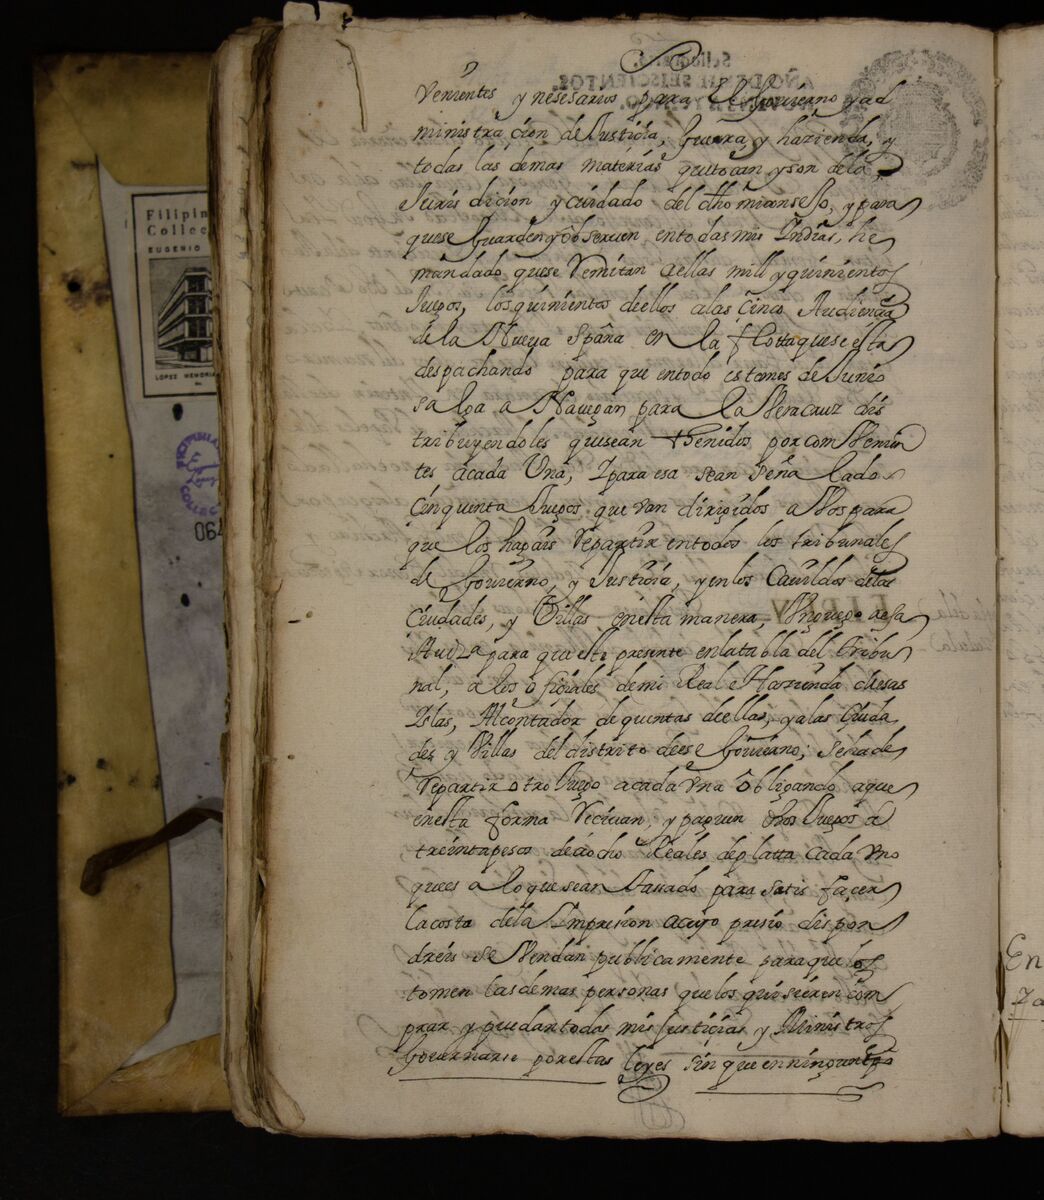 venientes y nesesarios para el Govierno y ad
ministracion de Justicia, Guerra, y hazienda, y
todas las demas materias que tocan y son de la
Juris dicion y cuidado del dho mi consejo, y para
que se Guarden y observen en todas mis Indias, he
mandado que se Remitan a ellas mill y quinientos
Juegos, los quinientos de ellos a las cinco Audiencias
de la Nueva España en la flotta que se esta
despachando para que en todo este mes de Junio
salga a Navegar para la Veracruz dis
tribuyendoles que sean thenidos por convenien
tes a cada Una, I para esa se an señalado
cinquenta Juegos que van dirigidos a Vos para
que los hagais Repartir en todos los tribunales
de Govierno, y Justicia, y en los Cavildos de las
Ciudades, y Villas en esta manera, Un juego a esa
Auza para que este presente en la tabla del tribu
nal, a los oficiales de mi Real Hazienda de esas
Islas, Al contador de quentas de ellas, y a las Ciuda
des y Villas del distrito de ese Govierno, se ha de
Repartir otro Juego a cada Una obligando a que
en esta forma Recivan, y paguen dhos Juegos a
treinta pesos de a ocho Reales de platta cada Uno
que es a lo que se an tassado para satisfaçer
la costa de la Impresion a cuyo presio dispon
dreis se Vendan publicamente para que los
tomen las demas personas que los quisieren com
prar y puedan todas mis justicias y Ministros
Governarse por estas leyes sin que en ningun
Filipin
Collec
EUGENIO
LOPEZ MEMORIA
COLLEC
064
En